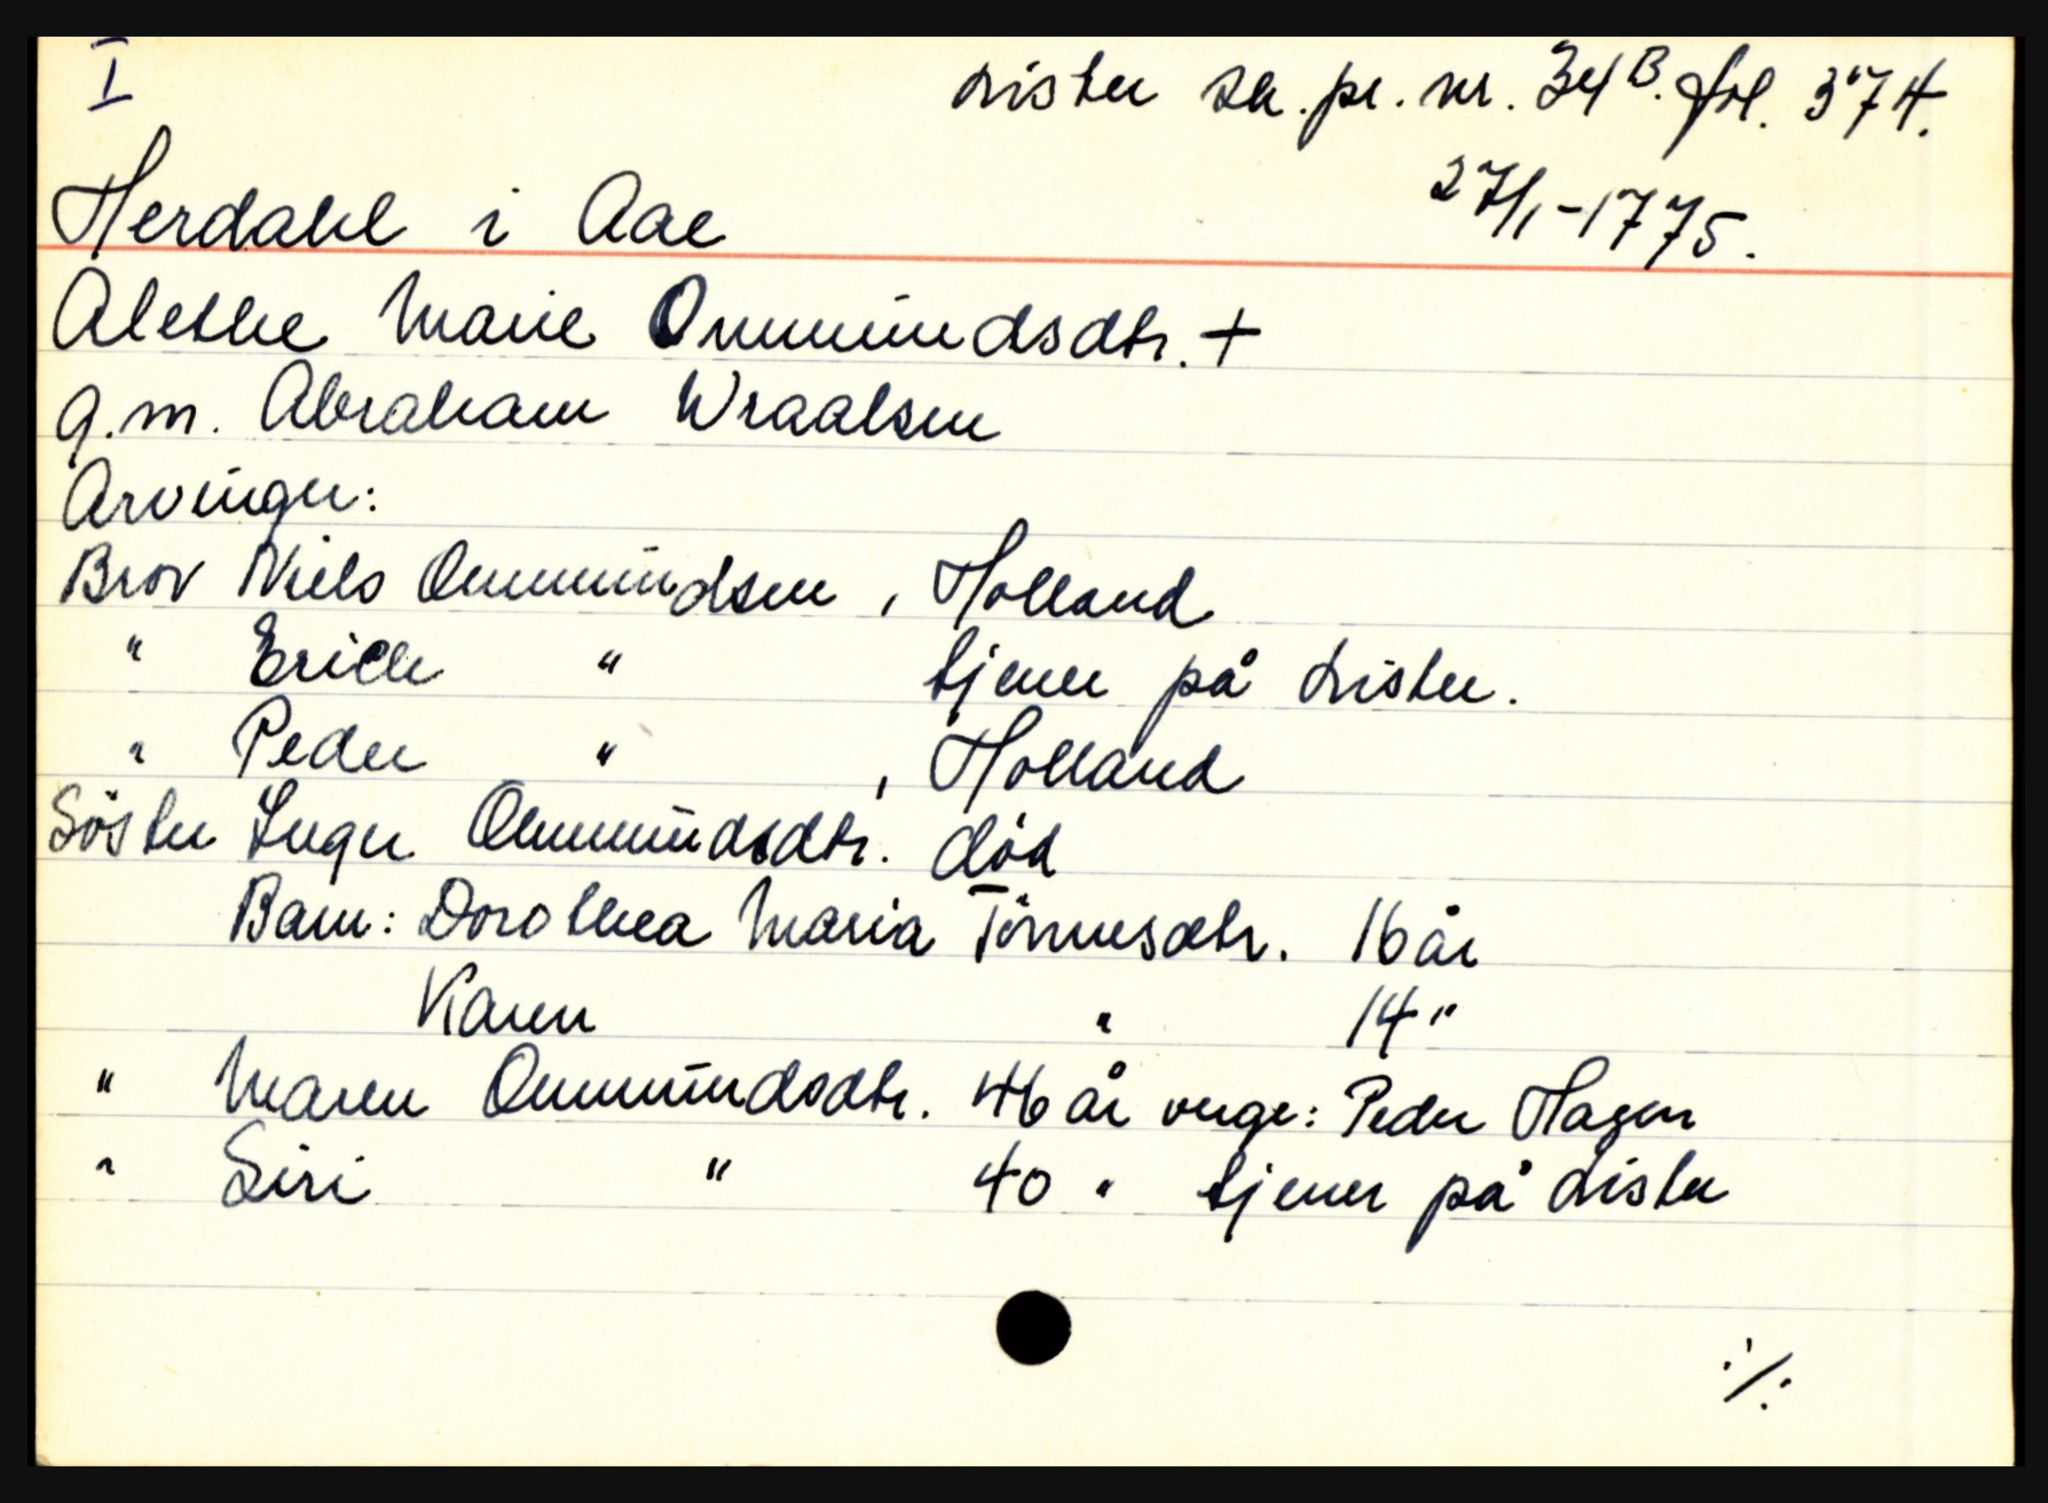 I
Lister sk. pr. nr. 34 B. fol. 374.
27/1-1775.
Herdahl i Aae
Alethe Marie Ommundsdtr. +
g.m. Abraham Wraalsen
Arvinger:
Bror Niels Ommundsen, Holland
" Erich " tjener på Lister.
" Peder ", Holland
Söster Inger Ommundsdtr. død
Barn: Dorothea Maria Tönnesdtr. 16 år
Karen " 14 "
" Maren Ommundsdtr. 46 år verge: Peder Hagen
" Siri " 40 " tjener på Lister
./.